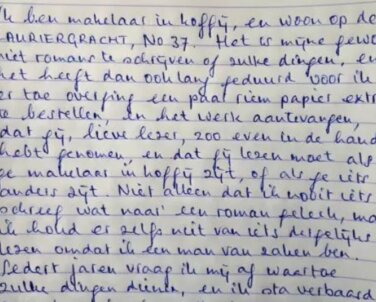 k ben makelaar in koffij, en woon op de
LAURIERGRACHT, No 37. Het is mijne gewo
niet romans te schrijven of zulke dingen, en
het heeft dan ook lang geduurd voor ik
er toe overging een paar riem papier extr
te bestellen, en het werk aantevangen,
dat gij, lieve lezer, zoo even in de hand
hebt genomen, en dat gij lezen moet als
ge makelaar in koffij zijt, of als ge iets
anders zijt. Niet alleen dat ik nooit iets
schreef wat naar een roman geleek, ma
ik houd er zelfs niet van iets dergelijks
lezen omdat ik een man van zaken ben.
Sedert jaren vraag ik mij af waartoe
zulke dingen dienen, en ik sta verbaasd